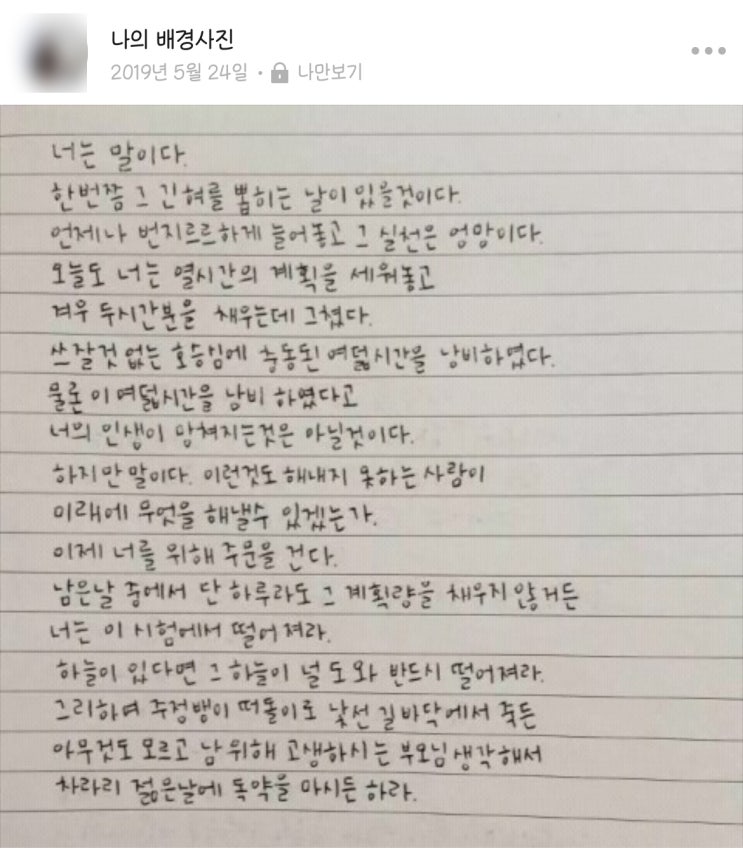 나의 배경사진
2019년 5월 24일 · 나만보기
너는 말이다.
한번쯤 그 긴혀를 뽑히는 날이 있을것이다.
언제나 번지르르하게 늘어놓고 그 실천은 엉망이다.
오늘도 너는 열시간의 계획을 세워놓고
겨우 두시간분을 채우는데 그쳤다.
쓰잘것 없는 호승심에 충동된 여덟시간을 낭비하였다.
물론 이 여덟시간을 낭비 하였다고
너의 인생이 망쳐지는것은 아닐것이다.
하지만 말이다. 이런것도 해내지 못하는 사람이
미래에 무엇을 해낼수 있겠는가.
이제 너를 위해 주문을 건다.
남은날 중에서 단 하루라도 그 계획량을 채우지 않거든
너는 이 시험에서 떨어져라.
하늘이 있다면 그 하늘이 널 도와 반드시 떨어져라.
그리하여 주정뱅이 떠돌이로 낯선 길바닥에서 죽든
아무것도 모르고 남 위해 고생하시는 부모님 생각해서
차라리 젊은날에 독약을 마시든 하라.